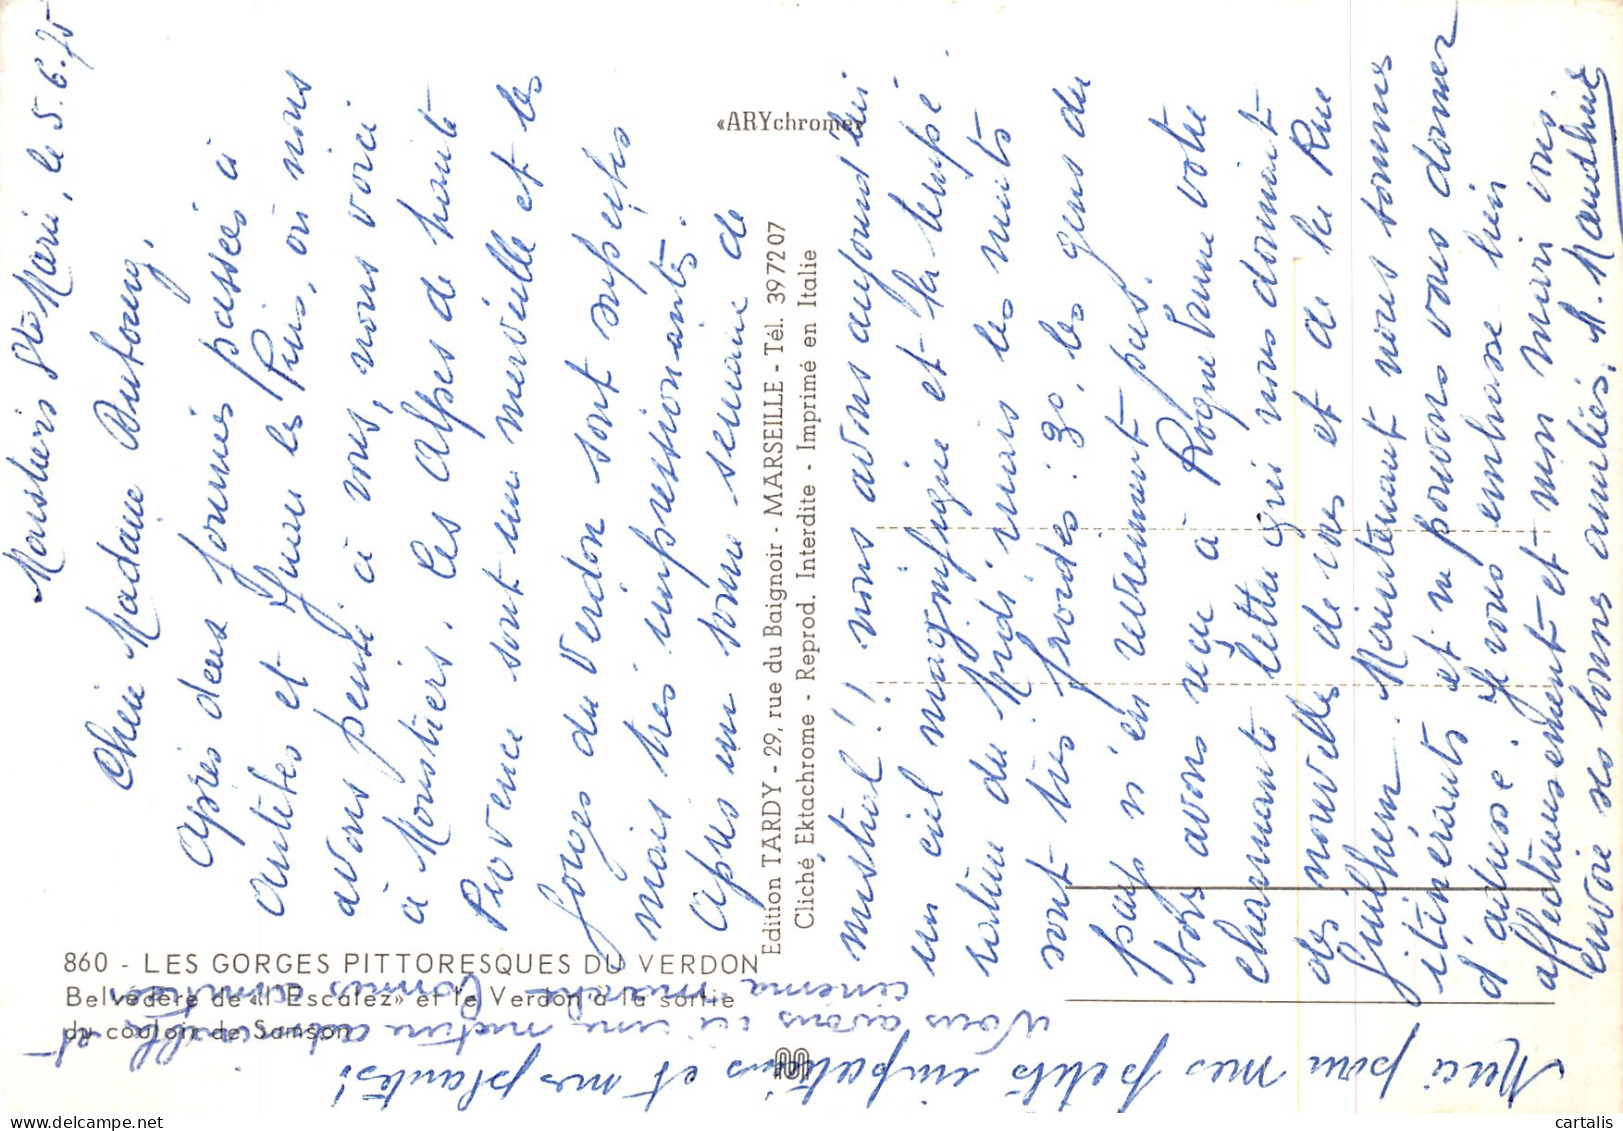 Moustiers Ste Marie, le 5.6.75
Chère Madame
Après deux journées passées à
Antibes et Juan les Pins, où nous
avons pensé à vous, nous voici
à Moustiers. Les Alpes de haute
Provence sont une merveille et les
Gorges du Verdon sont superbes
mais très impressionantes.
Après une bonne semaine de
mistral!! nous avons aujourd'hui
un ciel magnifique et la tempé
rature du Midi, mais les nuits
sont très froides: 3°, les gens du
pays n'en reviennent pas.
Nous avons reçu à Roquebrune votre
charmante lettre qui nous donnait
des nouvelles de vous et de la Rue
Maintenant nous sommes
itinérants et ne pouvons vous donner
d'adresse. Je vous embrasse bien
affectueusement et mon mari vous
envoie ses bonnes amitiés. M.
Merci pour mes petits impatiens et mes plantes!
Nous avons ici une
cinéma
«ARYchrome»
Edition TARDY - 29, rue du Baignoir - MARSEILLE - Tél. 39 72 07
Cliché Ektachrome - Reprod. Interdite - Imprimé en Italie
860 - LES GORGES PITTORESQUES DU VERDON
Belvédère de «l'Escalez» et le Verdon à la sortie
du couloir de Samson
cartalis